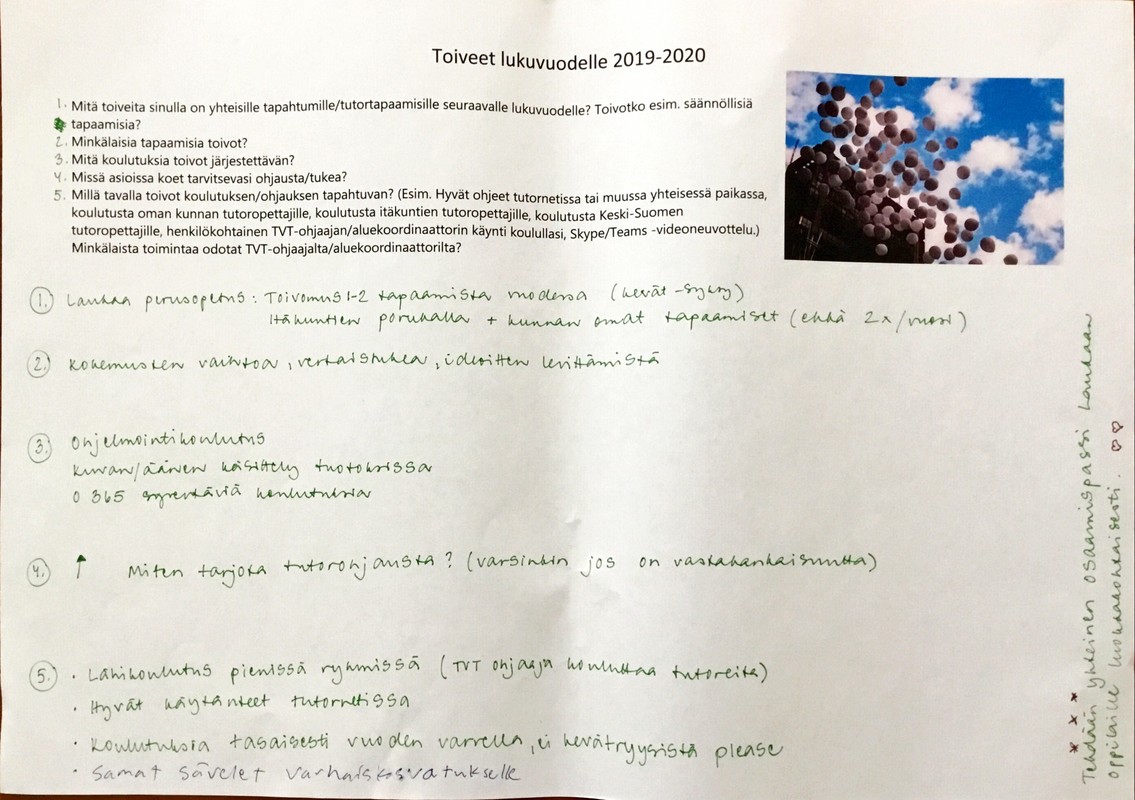 Toiveet lukuvuodelle 2019-2020
1. Mitä toiveita sinulla on yhteisille tapahtumille/tutortapaamisille seuraavalle lukuvuodelle? Toivotko esim. säännöllisiä
tapaamisia?
2. Minkälaisia tapaamisia toivot?
3. Mitä koulutuksia toivot järjestettävän?
4. Missä asioissa koet tarvitsevasi ohjausta/tukea?
5. Millä tavalla toivot koulutuksen/ohjauksen tapahtuvan? (Esim. Hyvät ohjeet tutornetissa tai muussa yhteisessä paikassa,
koulutusta oman kunnan tutoropettajille, koulutusta itäkuntien tutoropettajille, koulutusta Keski-Suomen
tutoropettajille, henkilökohtainen TVT-ohjaajan/aluekoordinaattorin käynti koulullasi, Skype/Teams -videoneuvottelu.)
Minkälaista toimintaa odotat TVT-ohjaajalta/aluekoordinaattorilta?
1. Laukaa perusopetus: Toivomus 1-2 tapaamista vuodessa (kevät - syksy)
Itäkuntien porukalla + kunnan omat tapaamiset (ehkä 2x/vuosi)
2. Kokemusten vaihtoa, vertaistukea, ideoitten levittämistä
3. Ohjelmointikoulutus
kuvan/äänen käsittely tuotoksissa
O365 syventäviä koulutuksia
4. ↑ Miten tarjota tutorohjausta? (varsinkin jos on vastahankaisuutta)
5. · Lähikoulutus pienissä ryhmissä (TVT ohjaaja kouluttaa tutoreita)
· Hyvät käytänteet tutornetissa
· Koulutuksia tasaisesti vuoden varrella, ei kevätryysistä please
· Samat sävelet varhaiskasvatukselle
* * * Tehdään yhteinen osaamispassi Laukaan
oppilaille luokkakohtaisesti. ♡♡